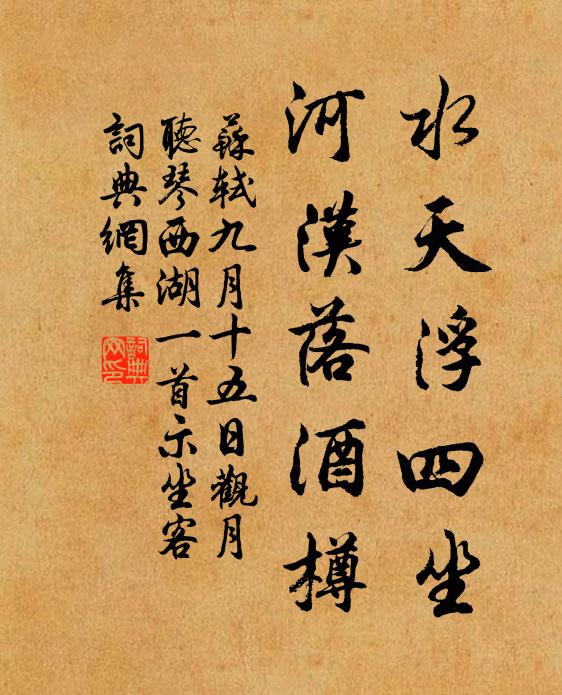 水天浮四坐
河漢落酒樽
蘇軾九月十五日觀月
聽琴西湖一首示坐客
詞典網集
詞典
网印